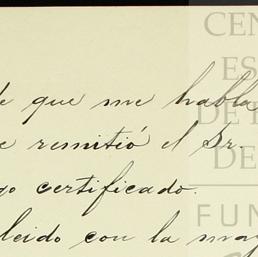 e que me habla
e remitió el Sr.
go certificado.
leido con la may
CEN
ES
DE
DE
FUN